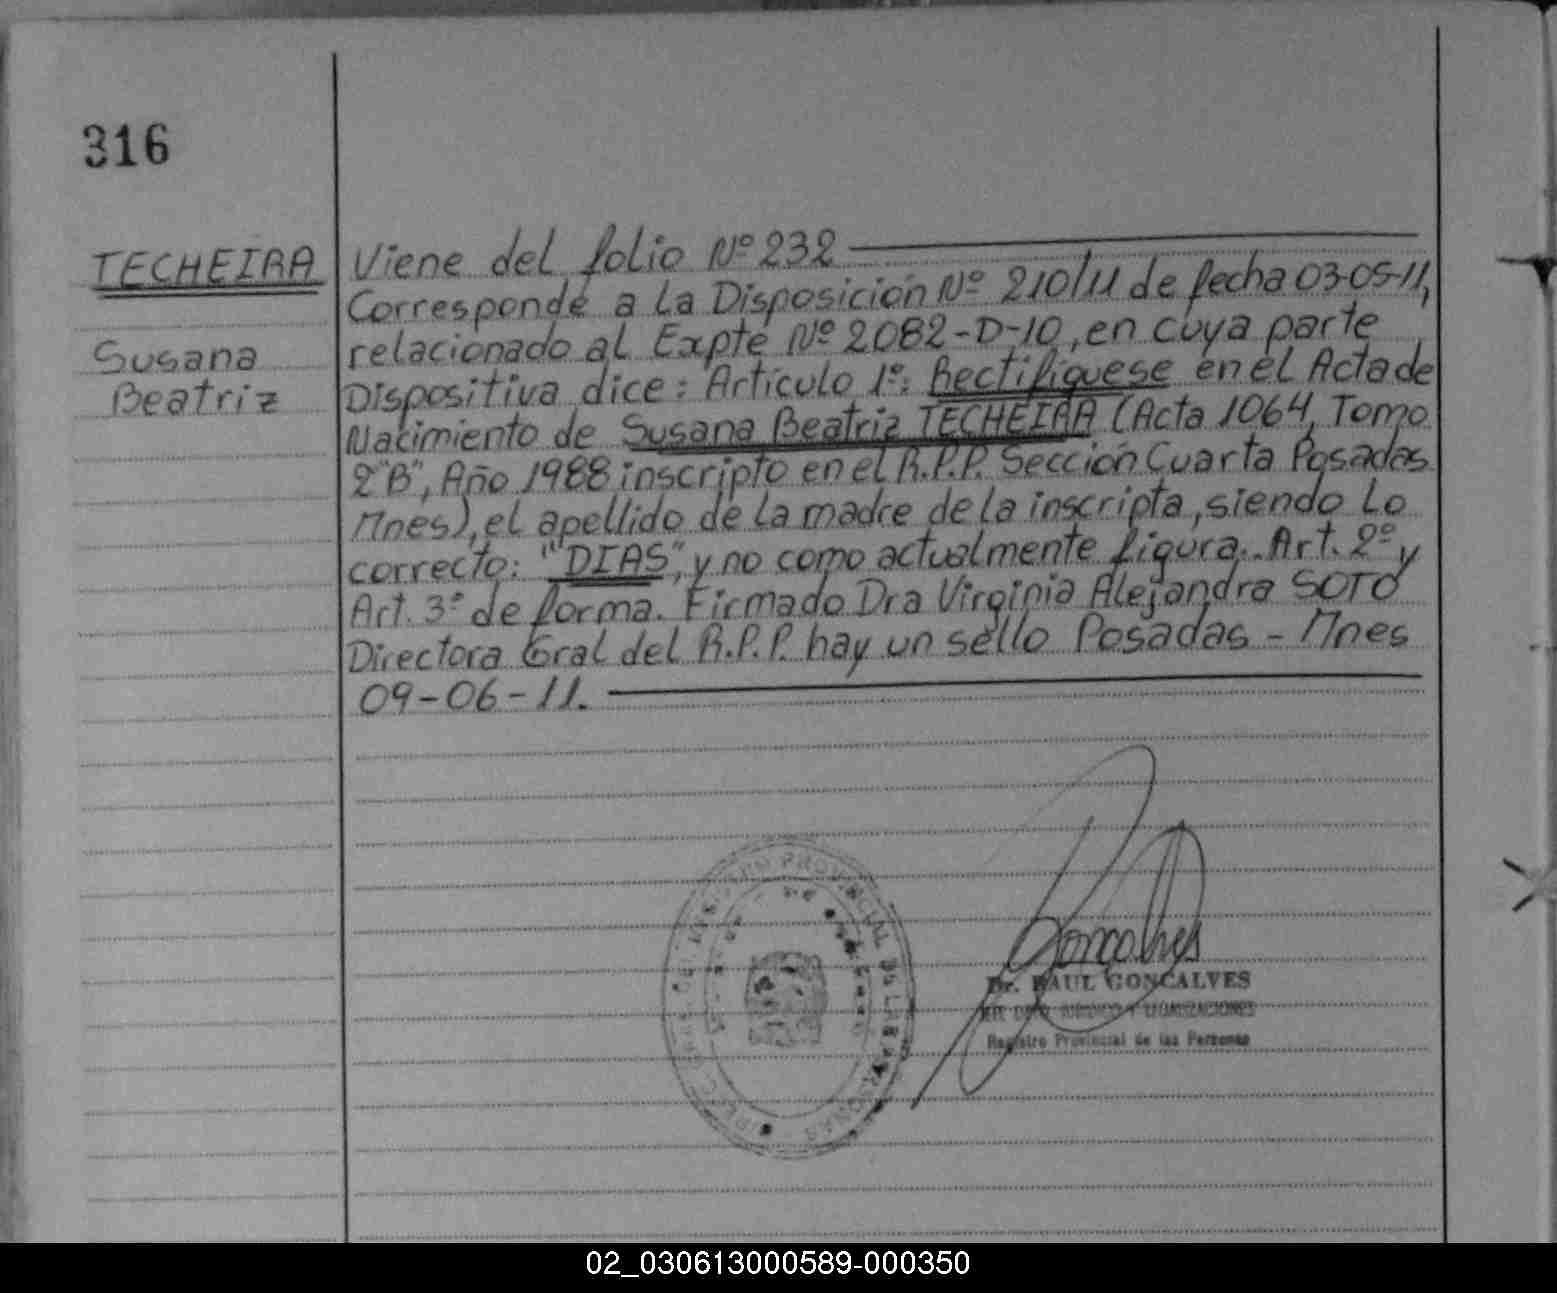 316
TECHEIRA
Susana
Beatriz
Viene del folio Nº 232
Corresponde a la Disposición Nº 210/11 de fecha 03-05-11,
relacionado al Expte Nº 2082-D-10, en cuya parte
Dispositiva dice: Artículo 1º: Rectifiquese en el Acta de
Nacimiento de Susana Beatriz TECHEIRA (Acta 1064, Tomo
2"B", Año 1988 inscripto en el R.P.P. Sección Cuarta Posadas
Mnes), el apellido de la madre de la inscripta, siendo lo
correcto: "DIAS", y no como actualmente figura. Art. 2º y
Art. 3º de forma. Firmado Dra Virginia Alejandra SOTO
Directora Gral del R.P.P. hay un sello Posadas - Mnes
09-06-11.
PROVINCIAL DE LAS PERSONAS
Goncalves
Dr. RAUL GONCALVES
JURIDICO Y LEGALIZACIONES
Registro Provincial de las Personas
02_030613000589-000350